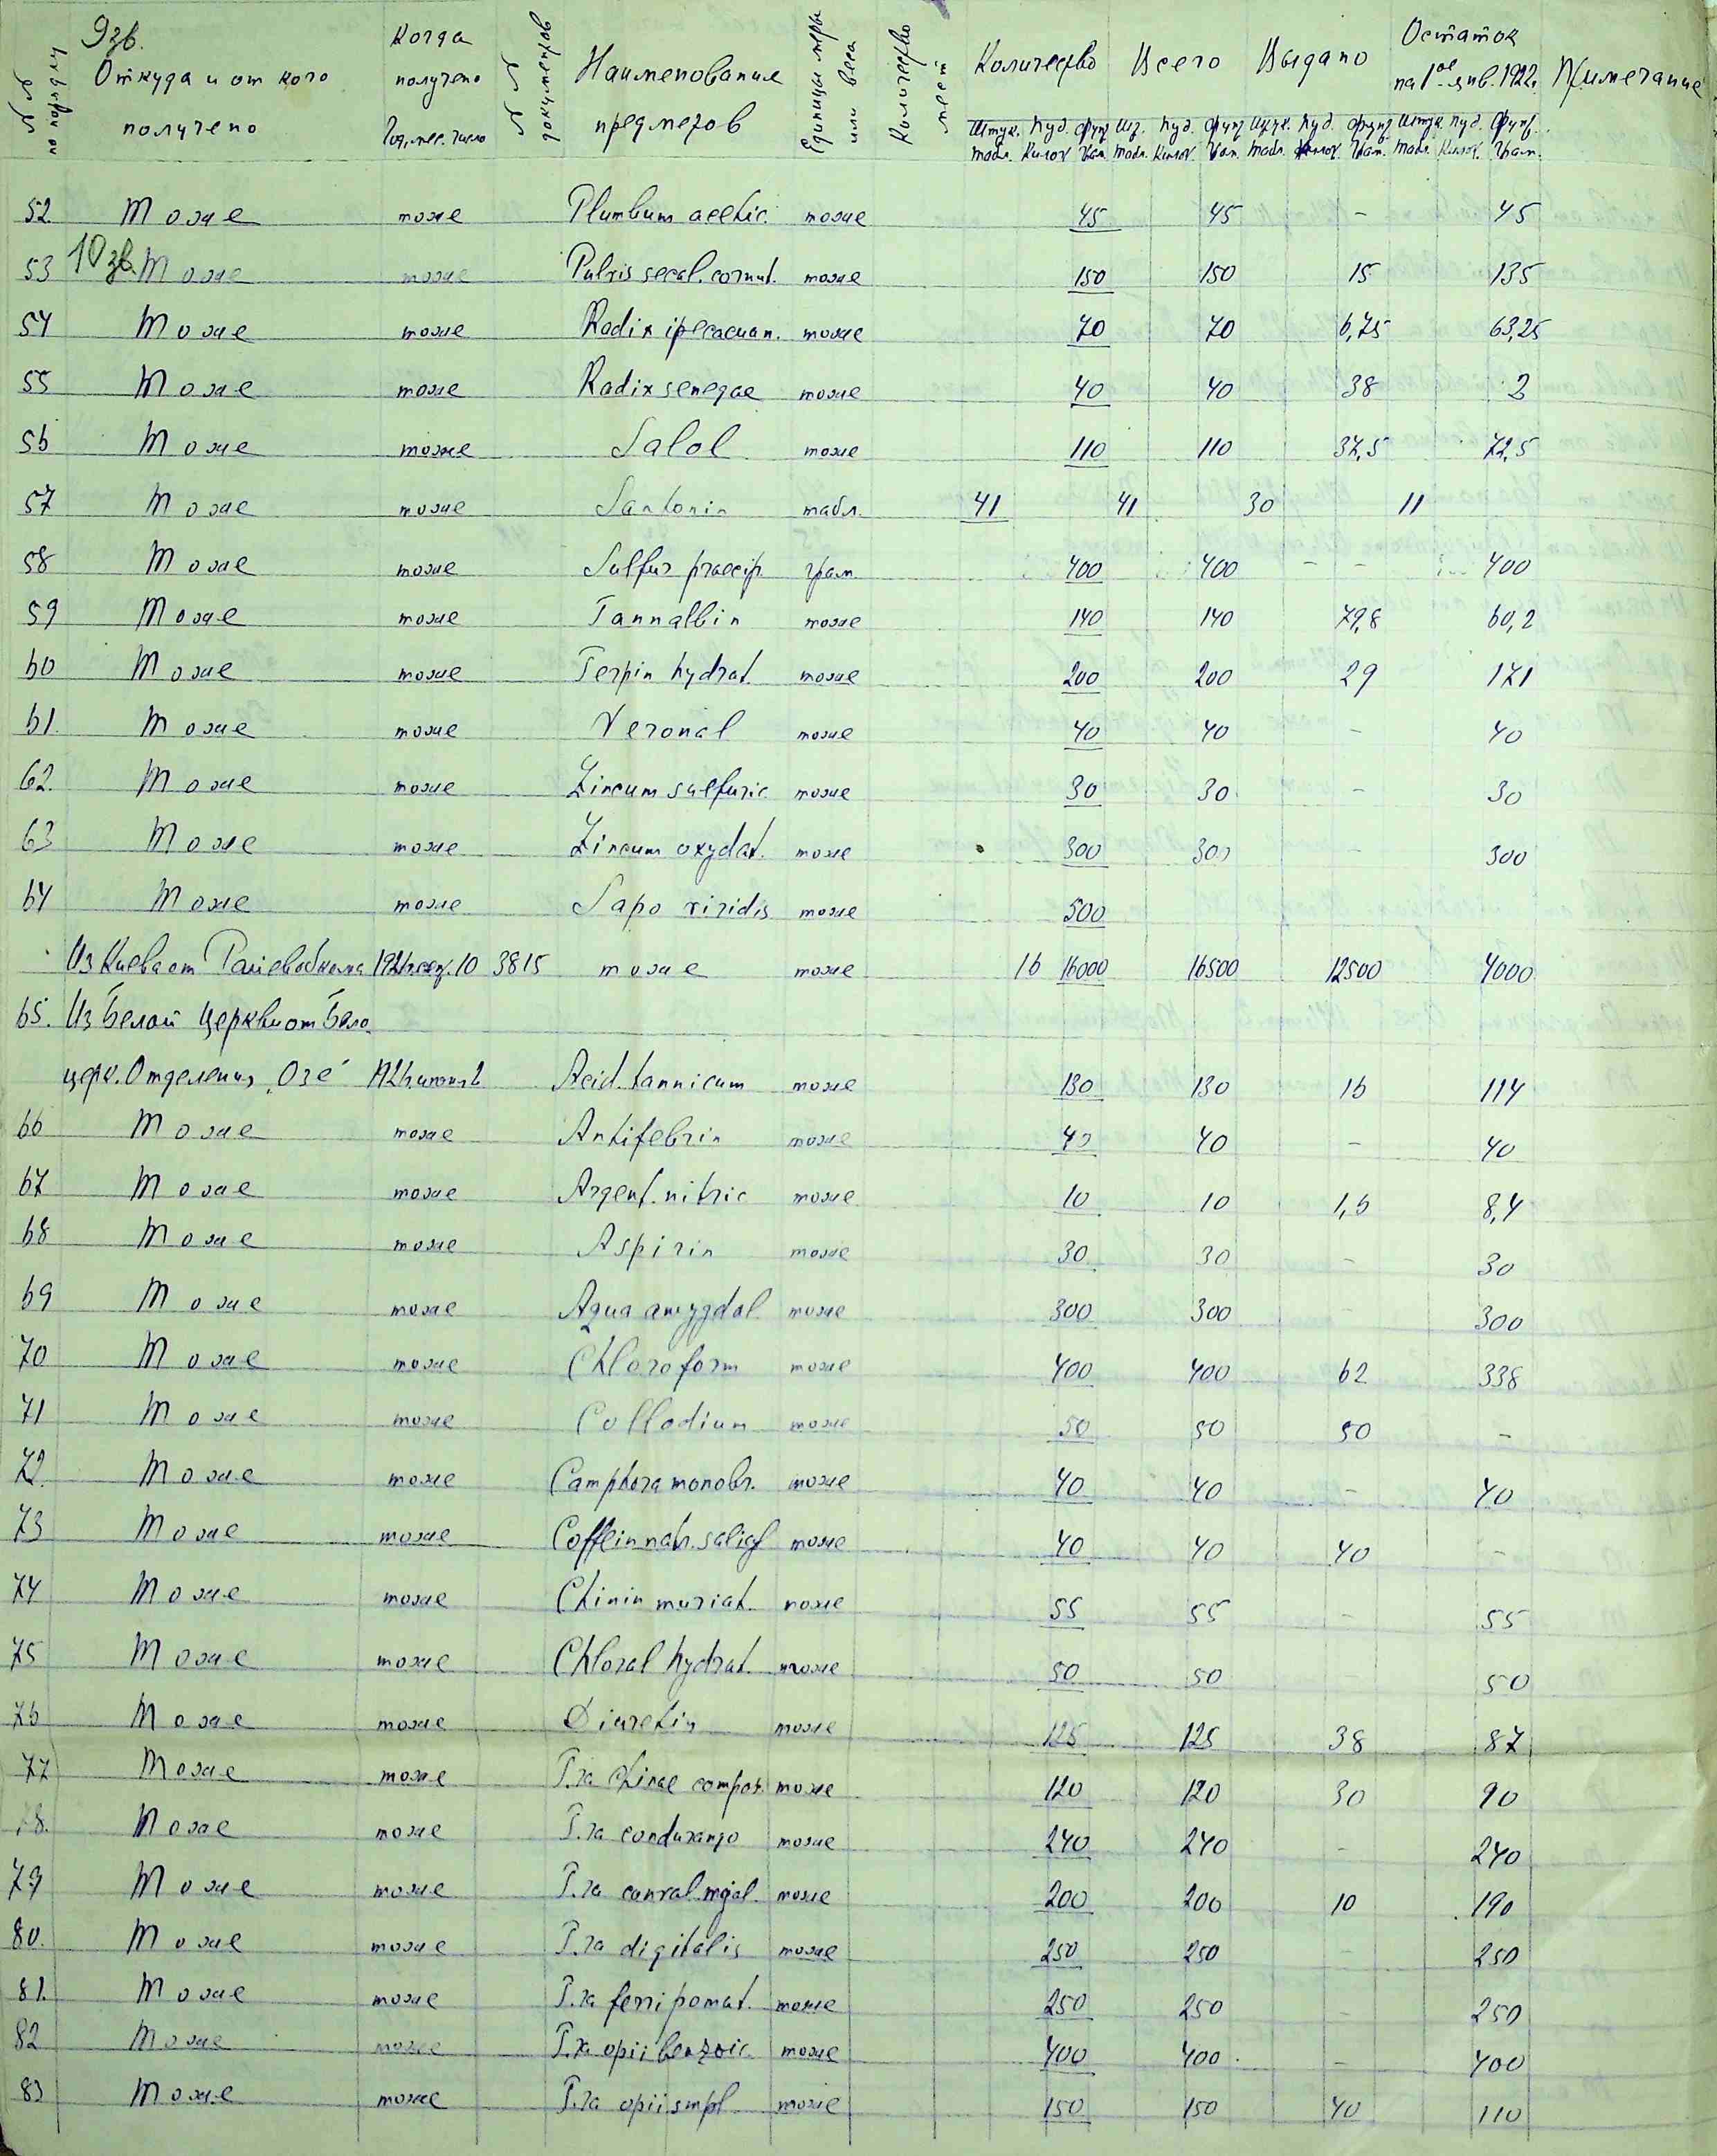 Откуда и от кого получено
Когда получено
Год, мес. число
№ № документов
Наименование предметов
Единицы меры или веса
Количество мест
Количество
Всего
Выдано
Остаток на 1ое янв. 1922г.
Примечание
Штук. Пуд. Фунт Шт. Пуд. Фунт Штук. Пуд. Фунт Штук. Пуд. Фунт.
Табл. Килог. Грам. Табл. Килог. Грам. Табл. Килог. Грам. Табл. Килог. Грам.
52 Тоже тоже Plumbum acetic. тоже 45 45 - 45
53 Тоже тоже Pulvis secal. cornut. тоже 150 150 15 135
54 Тоже тоже Radix ipecacuan. тоже 70 70 6,75 63,25
55 Тоже тоже Radix senegae тоже 40 40 38 2
56 Тоже тоже Salol тоже 110 110 37,5 72,5
57 Тоже тоже Santonin табл. 41 41 30 11
58 Тоже тоже Sulfur praecip. грам. 400 400 - - 400
59 Тоже тоже Tannalbin тоже 140 140 79,8 60,2
60 Тоже тоже Terpin hydrat. тоже 200 200 29 171
61. Тоже тоже Veronal тоже 40 40 - 40
62. Тоже тоже Zincum sulfuric. тоже 30 30 - 30
63 Тоже тоже Zincum oxydat. тоже 300 300 - 300
64 Тоже тоже Sapo viridis тоже 500
Из Киева от 10 3815 тоже тоже 16 16000 16500 12500 4000
65. Из Белой Церкви от Бело
церк. Отделения "Озе" Acid. tannicum тоже 130 130 16 114
66 Тоже тоже Antifebrin тоже 40 40 - 40
67 Тоже тоже Argent. nitric тоже 10 10 1,6 8,4
68 Тоже тоже Aspirin тоже 30 30 - 30
69 Тоже тоже Aqua amygdal. тоже 300 300 300
70 Тоже тоже Chloroform тоже 400 400 62 338
71 Тоже тоже Collodium тоже 50 50 50 -
72. Тоже тоже Camphora monobr. тоже 40 40 - 40
73 Тоже тоже Coffein natr. salicyl тоже 40 40 40 -
74 Тоже тоже Chinin muriat. тоже 55 55 - 55
75 Тоже тоже Chloral hydrat. тоже 50 50 50
76 Тоже тоже Diuretin тоже 125 125 38 87
77 Тоже тоже T.ra chinae compos. тоже 120 120 30 90
78. Тоже тоже T.ra condurango тоже 240 240 - 240
79 Тоже тоже T.ra тоже 200 200 10 190
80. Тоже тоже T.ra digitalis тоже 250 250 - 250
81. Тоже тоже T.ra ferri pomat. тоже 250 250 - 250
82 Тоже тоже T.ra opii benzoic. тоже 400 400 - 400
83 Тоже тоже T.ra opii smpl тоже 150 150 40 110